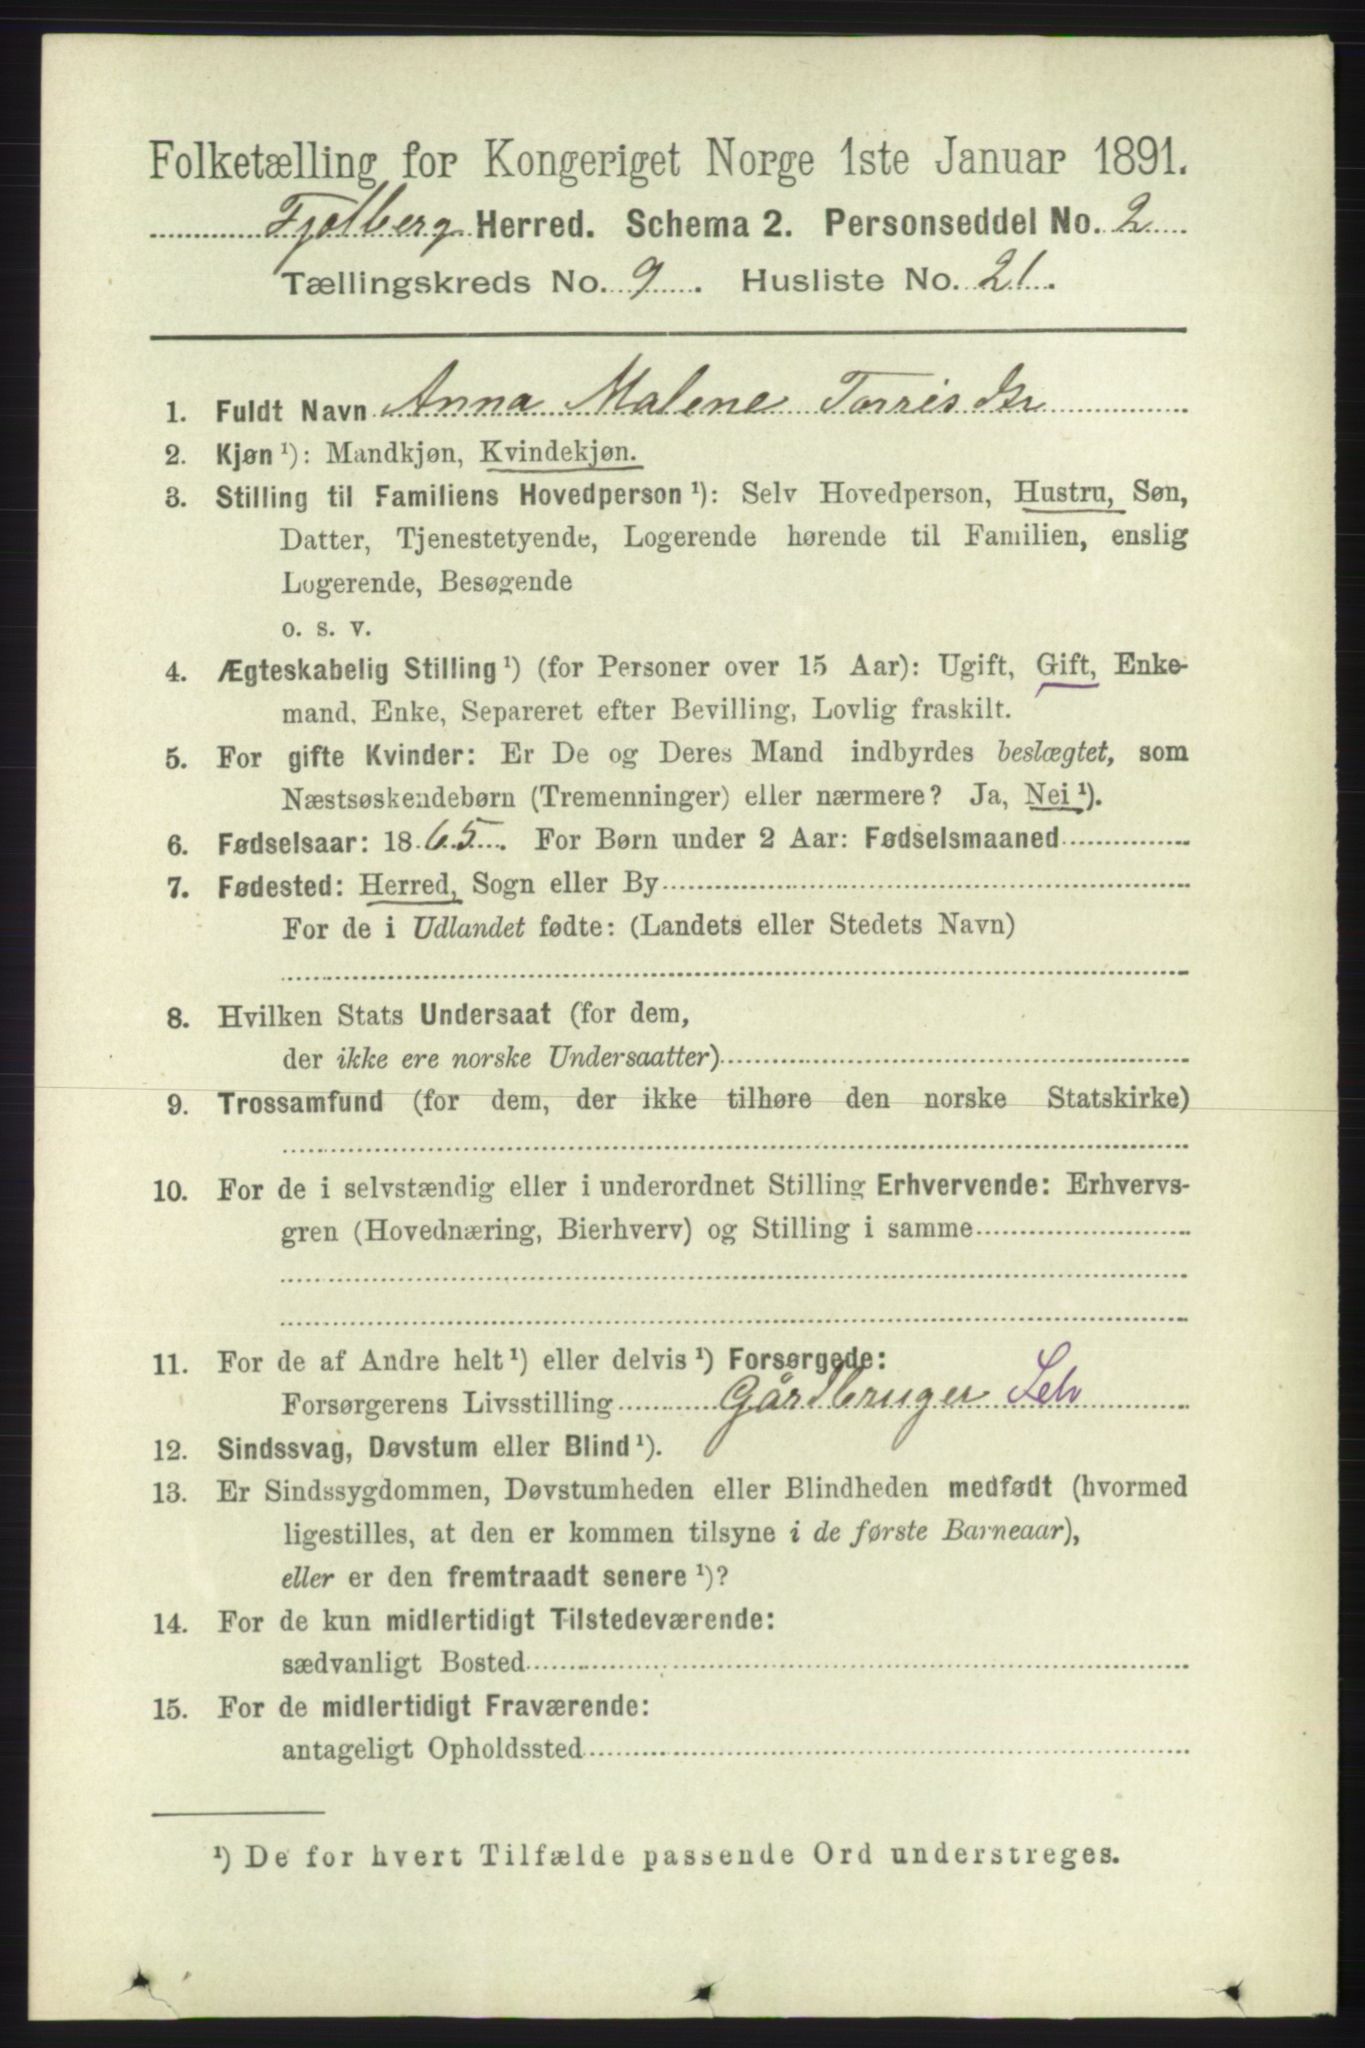 Folketælling for Kongeriget Norge 1ste Januar 1891.
Fjelberg Herred. Schema 2. Personseddel No. 2
Tællingskreds No. 9. Husliste No. 21.
1. Fuldt Navn Anna Malene Torris Dr
2. Kjøn ¹): Mandkjøn, Kvindekjøn.
3. Stilling til Familiens Hovedperson ¹): Selv Hovedperson, Hustru, Søn,
Datter, Tjenestetyende, Logerende hørende til Familien, enslig
Logerende, Besøgende
o. s. v.
4. Ægteskabelig Stilling ¹) (for Personer over 15 Aar): Ugift, Gift, Enke-
mand, Enke, Separeret efter Bevilling, Lovlig fraskilt.
5. For gifte Kvinder: Er De og Deres Mand indbyrdes beslægtet, som
Næstsøskendebørn (Tremenninger) eller nærmere? Ja, Nei ¹).
6. Fødselsaar: 1865. For Børn under 2 Aar: Fødselsmaaned
7. Fødested: Herred, Sogn eller By
For de i Udlandet fødte: (Landets eller Stedets Navn)
8. Hvilken Stats Undersaat (for dem,
der ikke ere norske Undersaatter)
9. Trossamfund (for dem, der ikke tilhøre den norske Statskirke)
10. For de i selvstændig eller i underordnet Stilling Erhvervende: Erhvervs-
gren (Hovednæring, Bierhverv) og Stilling i samme
11. For de af Andre helt ¹) eller delvis ¹) Forsørgede:
Forsørgerens Livsstilling Gårdbruger Selv
12. Sindssvag, Døvstum eller Blind ¹).
13. Er Sindssygdommen, Døvstumheden eller Blindheden medfødt (hvormed
ligestilles, at den er kommen tilsyne i de første Barneaar),
eller er den fremtraadt senere ¹)?
14. For de kun midlertidigt Tilstedeværende:
sædvanligt Bosted
15. For de midlertidigt Fraværende:
antageligt Opholdssted
¹) De for hvert Tilfælde passende Ord understreges.